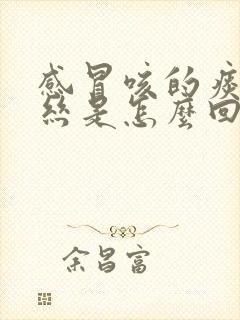 感冒咳的痰
丝是怎麼回
余昌富